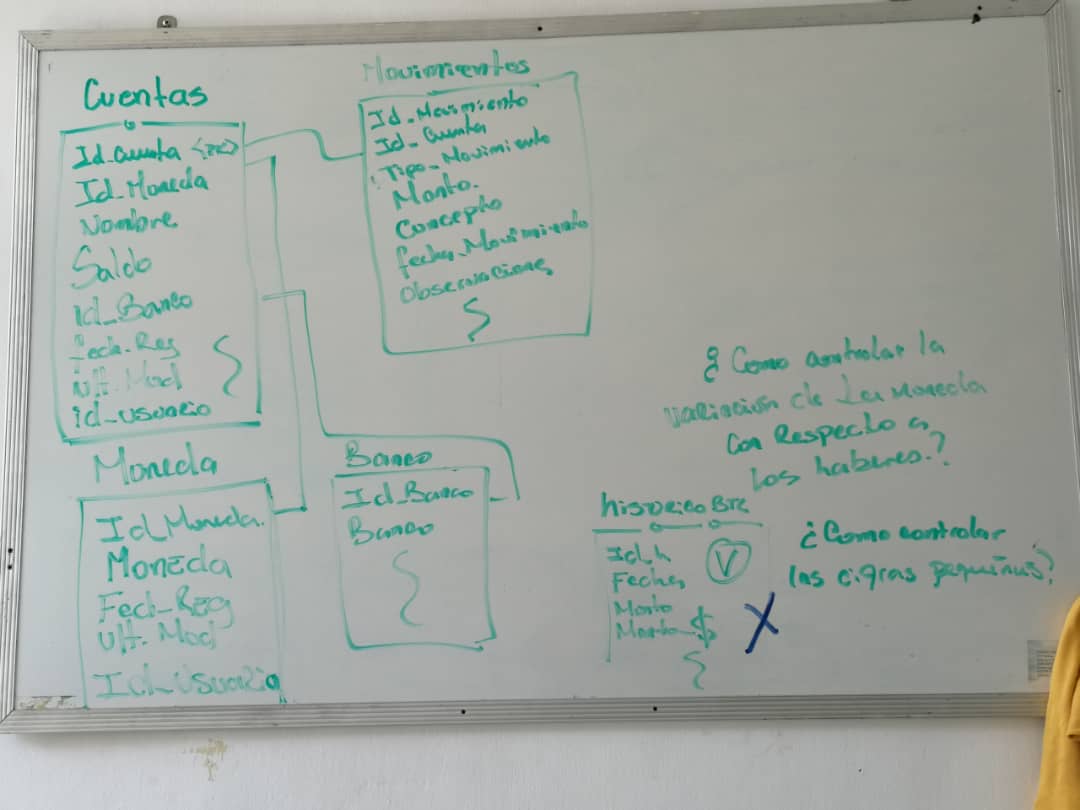 Cuentas
Id_Cuenta <PK>
Id_Moneda
Nombre
Saldo
Id_Banco
fech_Reg
Ult. Mod
id_usuario
Movimientos
Id_Movimiento
Id_Cuenta
Tipo_Movimiento
Monto.
Concepto
fecha_Movimiento
Observaciones
Moneda
Id_Moneda.
Moneda
Fech_Reg
Ult. Mod
Id_Usuario
Banco
Id_Banco
Banco
¿Como controlar la
variacion de La Moneda
Con Respecto a
los haberes.?
historico BTC
Id_h
Fecha
Monto
Monto_$
V
X
¿Como controlar
las cifras pequeñas?